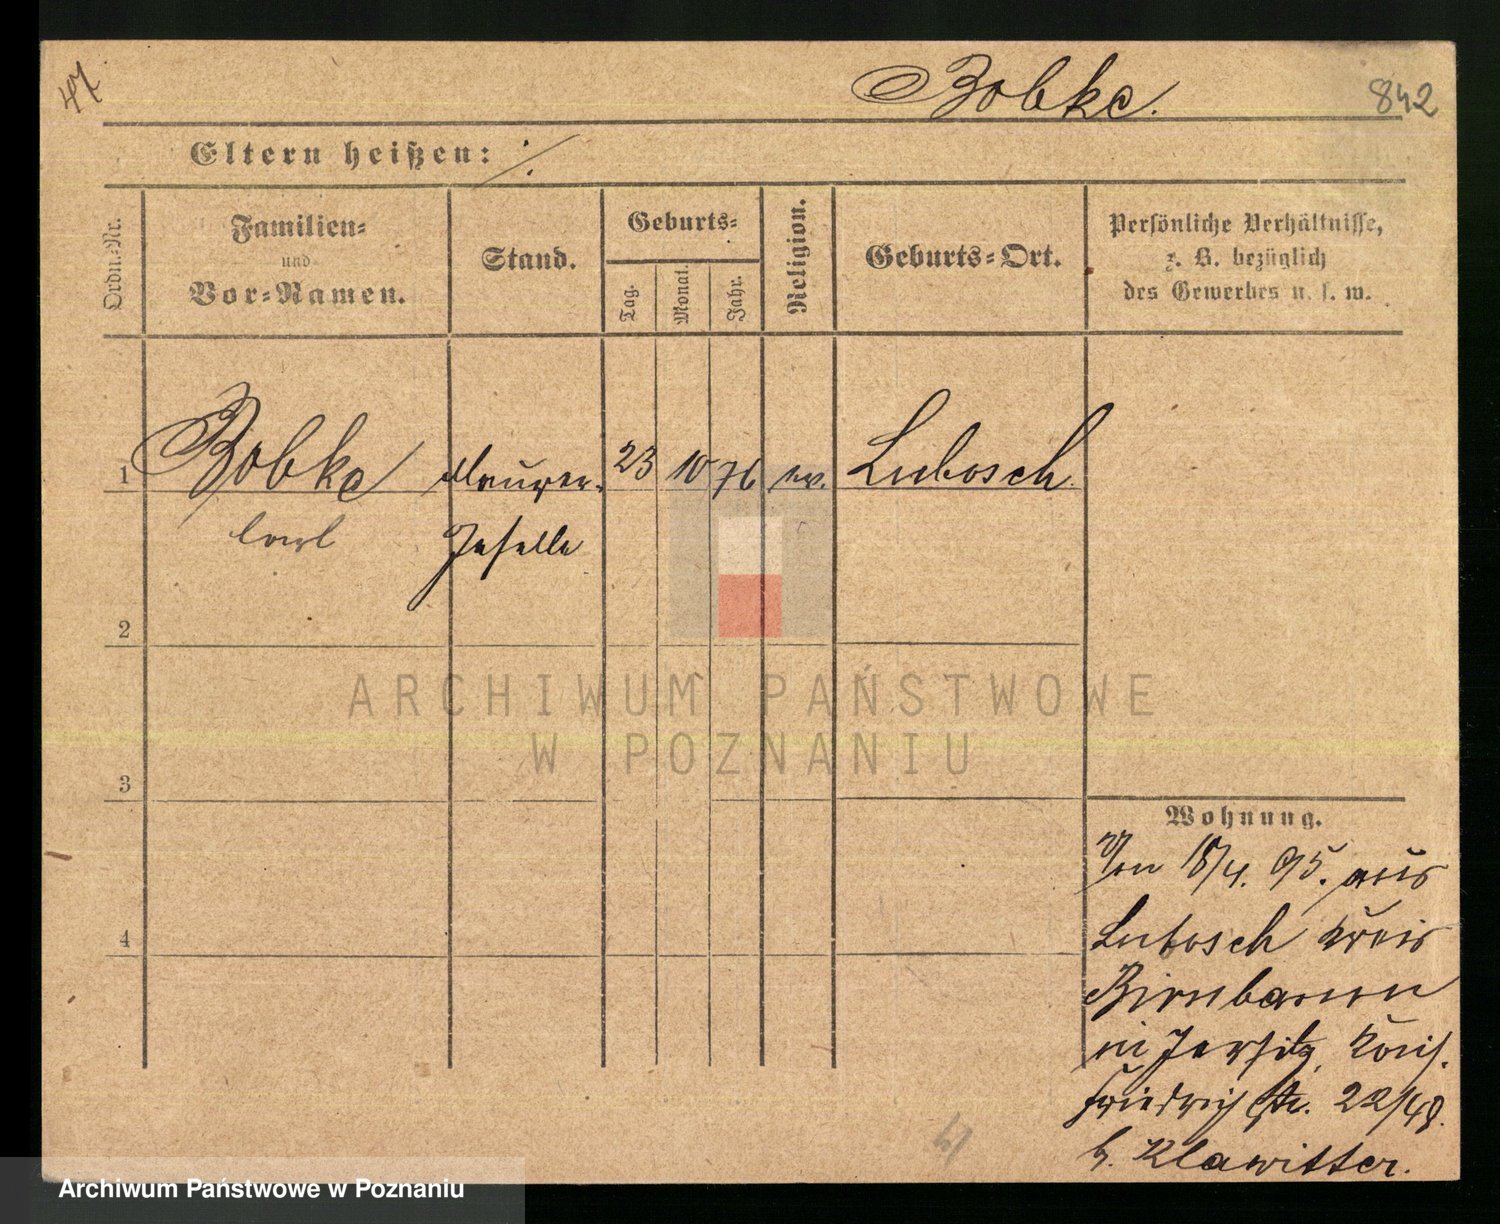 47.
Bobke.
842
Eltern heißen: ./.
Ordn.-Nr.
Familien-
und
Vor-Namen.
Stand.
Geburts-
Tag.
Monat.
Jahr.
Religion.
Geburts-Ort.
Persönliche Verhältnisse,
z. B. bezüglich
des Gewerbes u. s. w.
1 Bobke Maurer- 23 10 76 ev. Lubosch.
Carl Geselle
2
3
4
Wohnung.
Von 18/4. 95. aus
Lubosch Kreis
Birnbaum
in Jersitz,
Friedrich Str. 22/48.
b. Klawitter.
ARCHIWUM PAŃSTWOWE
W POZNANIU
Archiwum Państwowe w Poznaniu